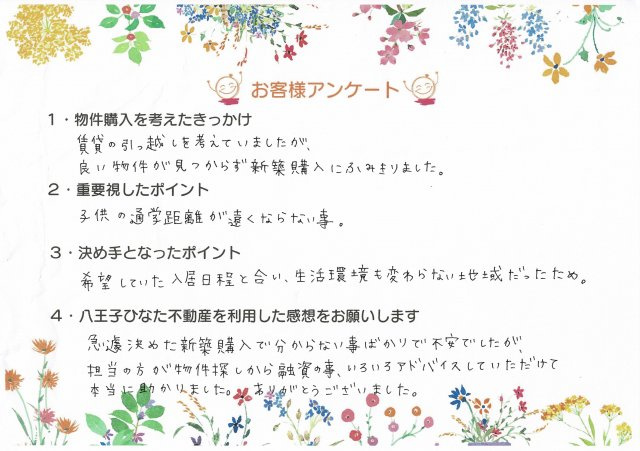 お客様アンケート
1・物件購入を考えたきっかけ
賃貸の引っ越しを考えていましたが、
良い物件が見つからず新築購入にふみきりました。
2・重要視したポイント
子供の通学距離が遠くならない事。
3・決め手となったポイント
希望していた入居日程と合い、生活環境も変わらない地域だったため。
4・八王子ひなた不動産を利用した感想をお願いします
急遽決めた新築購入で分からない事ばかりで不安でしたが、
担当の方が物件探しから融資の事、いろいろアドバイスしていただけて
本当に助かりました。ありがとうございました。